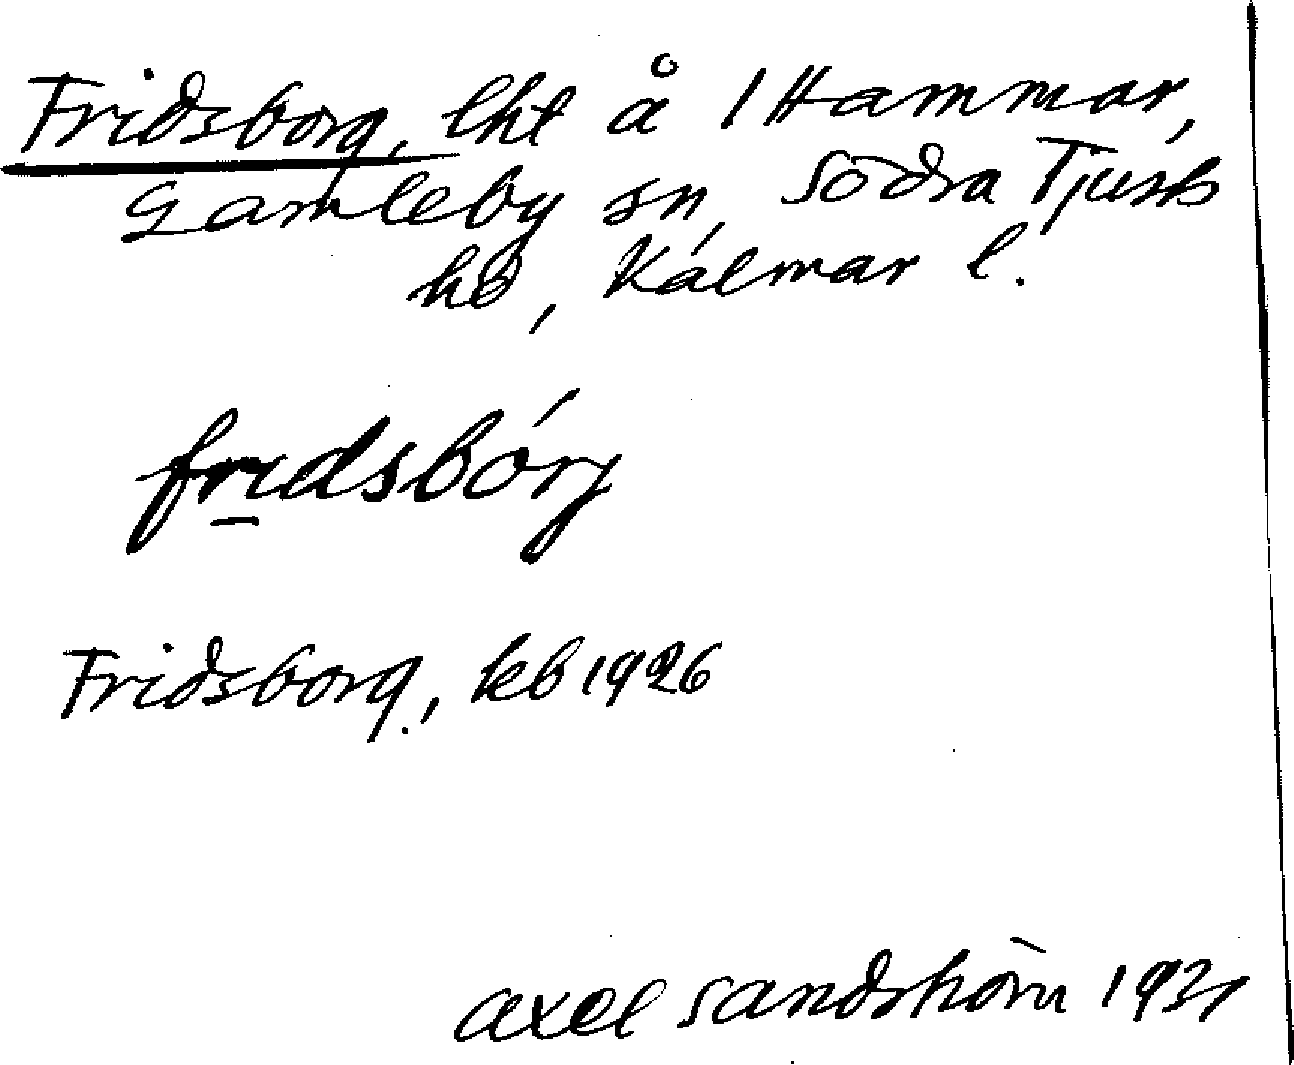 Fridsborg, lht å 1 Hammar,
Gamleby sn, Södra Tjusts
hd, Kalmar l.
fridsbórj
Fridsborg, kb 1926
Axel Sandström